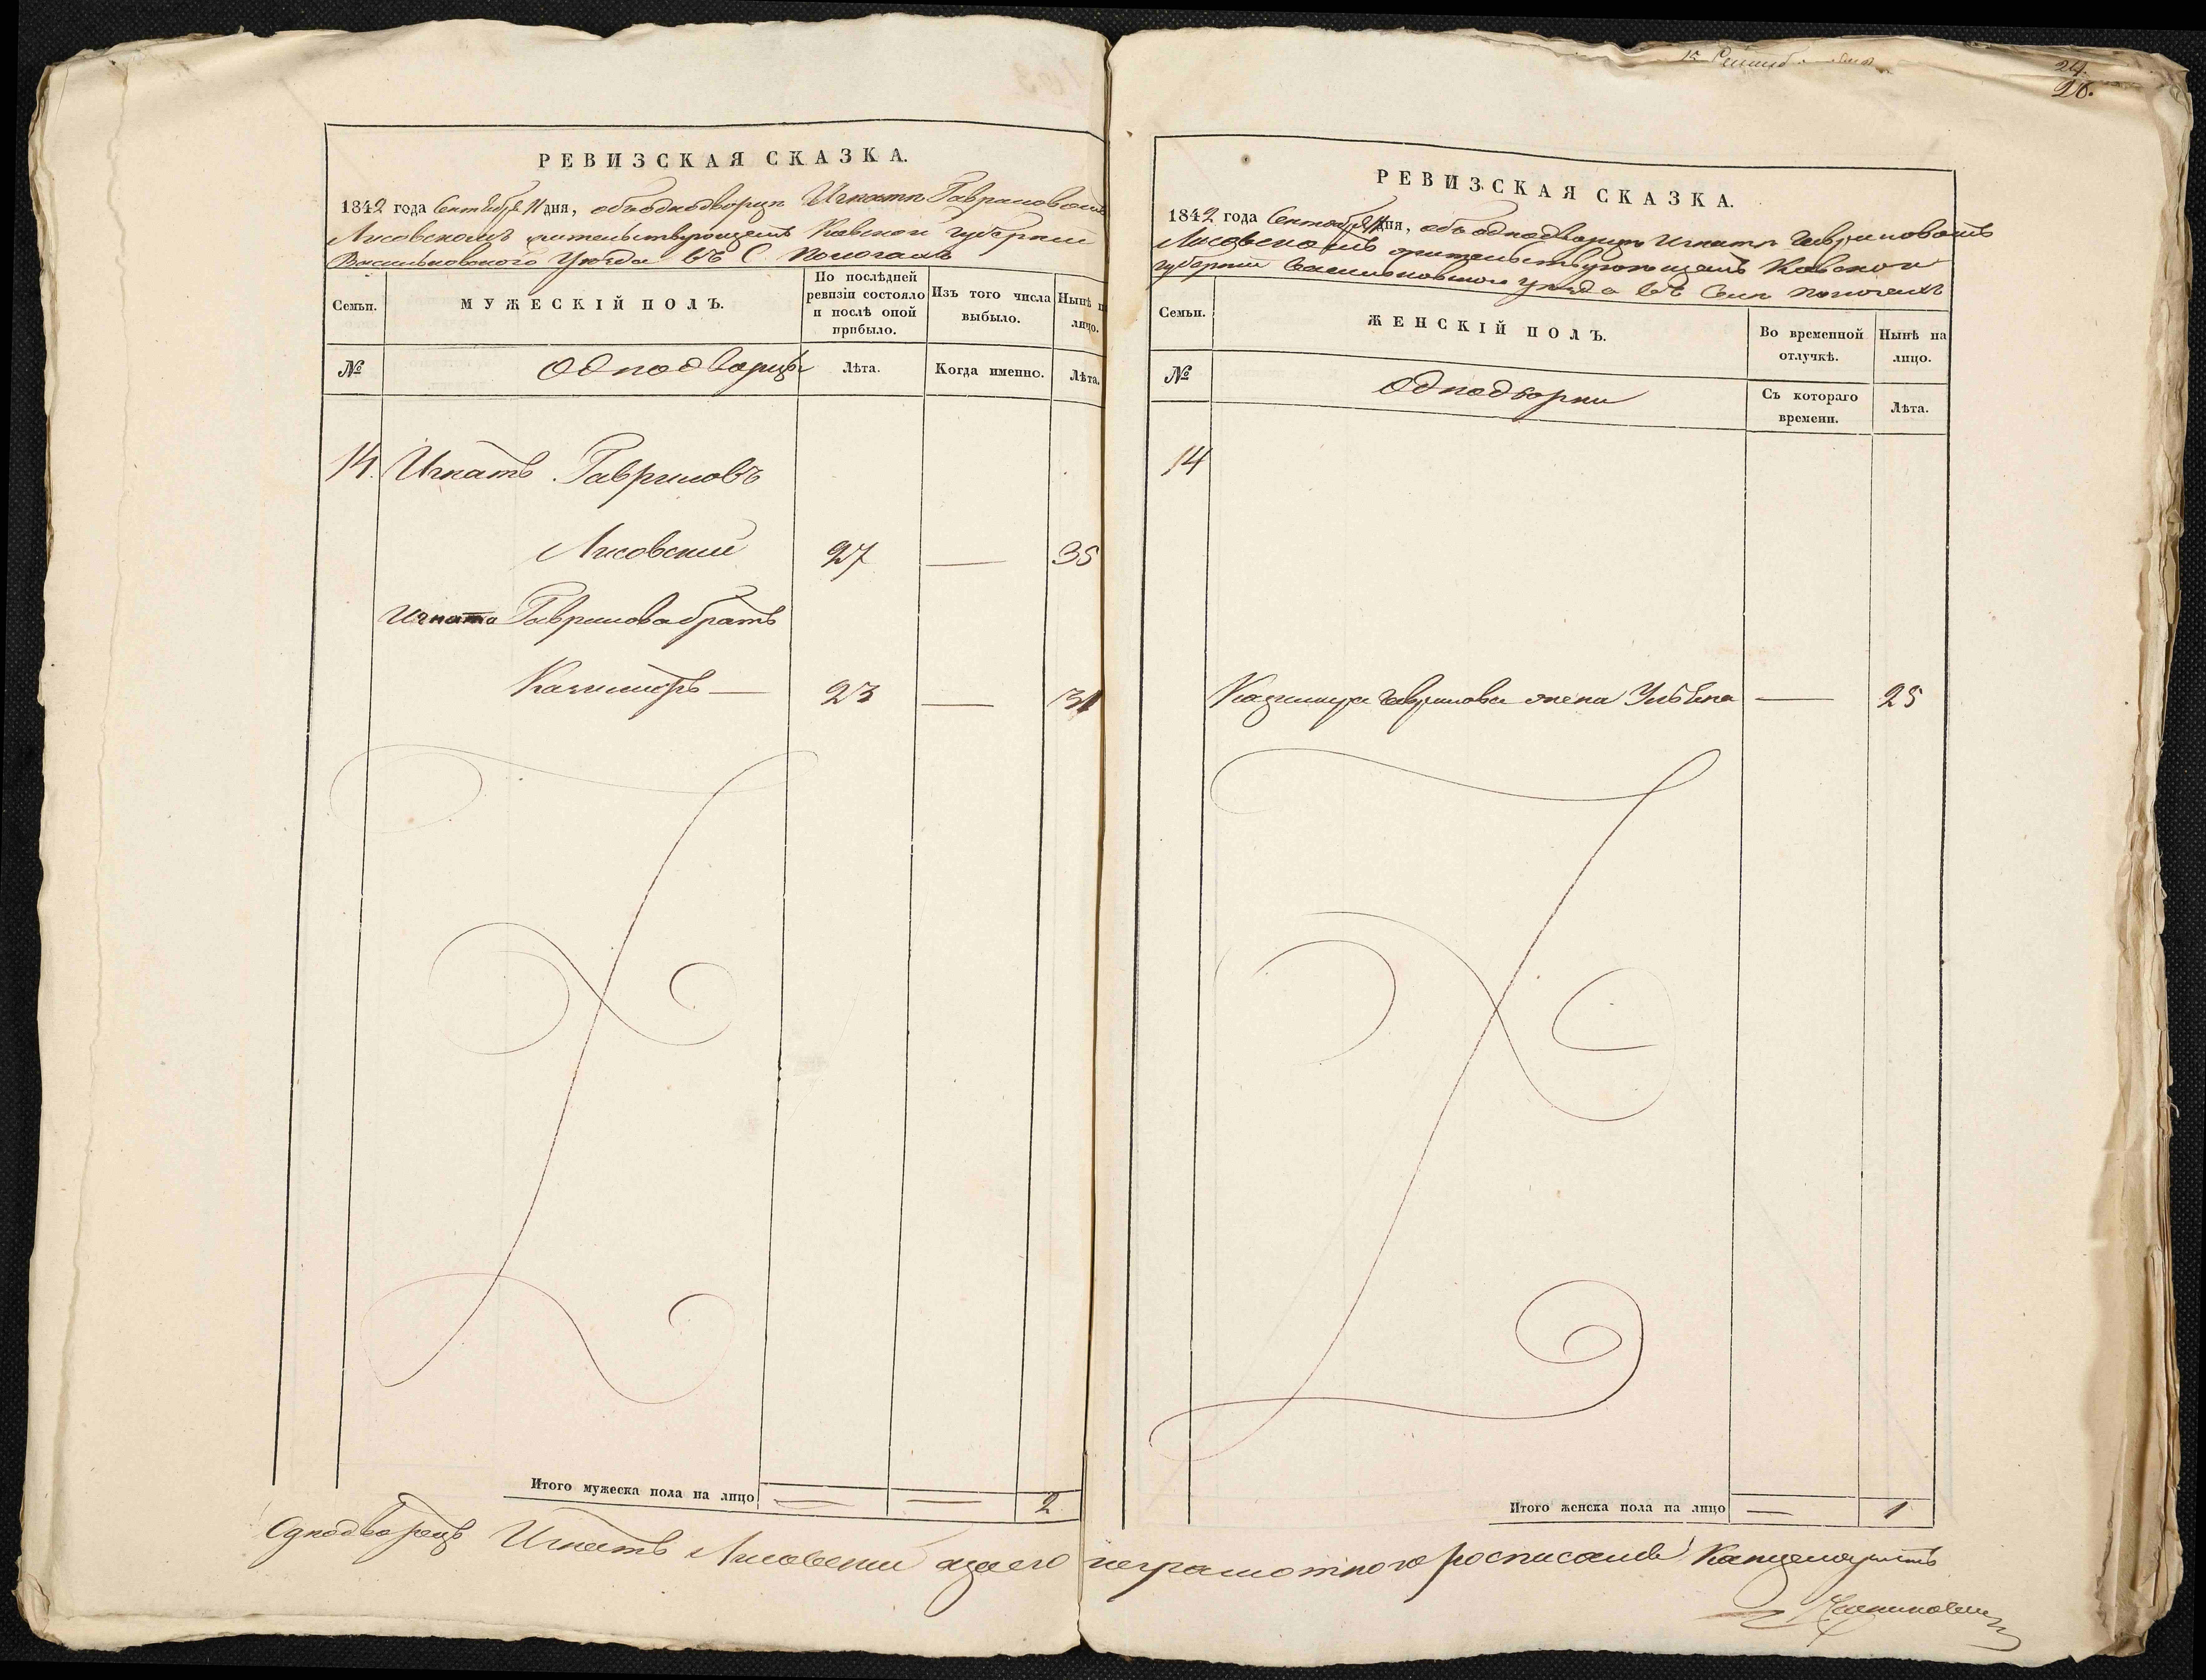 РЕВИЗСКАЯ СКАЗКА.
1842 года Сентября 11 дня, объ однодворцѣ Игнатѣ Гавриловомъ
Лисовскомъ жительствующемъ Кіевской губерніи
Васильковского Уѣзда въ С
Семьи.
МУЖЕСКІЙ ПОЛЪ.
По послѣдней ревизіи состояло и послѣ оной прибыло.
Изъ того числа выбыло.
Нынѣ н лицо.
№
Однодворцы
Лѣта.
Когда именно.
Лѣта.
14. Игнатъ Гавриловъ
Лисовскій 27 — 35
Игната Гаврилова братъ
Казимиръ — 23 — 31
Итого мужеска пола на лицо — — 2
15
24.
26.
РЕВИЗСКАЯ СКАЗКА.
1842 года Сентября 11 дня, объ однодворцѣ Игнатѣ Гавриловомъ
Лисовскомъ жительствующемъ Кіевской
губерніи Васильковского уѣзда въ Селѣ
Семьи.
ЖЕНСКІЙ ПОЛЪ.
Во временной отлучкѣ.
Нынѣ на лицо.
№
Однодворки
Съ котораго времени.
Лѣта.
14
Казимира Гаврилова жена — 25
Итого женска пола на лицо — 1
Однодворецъ Игнатъ Лисовскій а за его неграмотного росписался Канцеляристъ